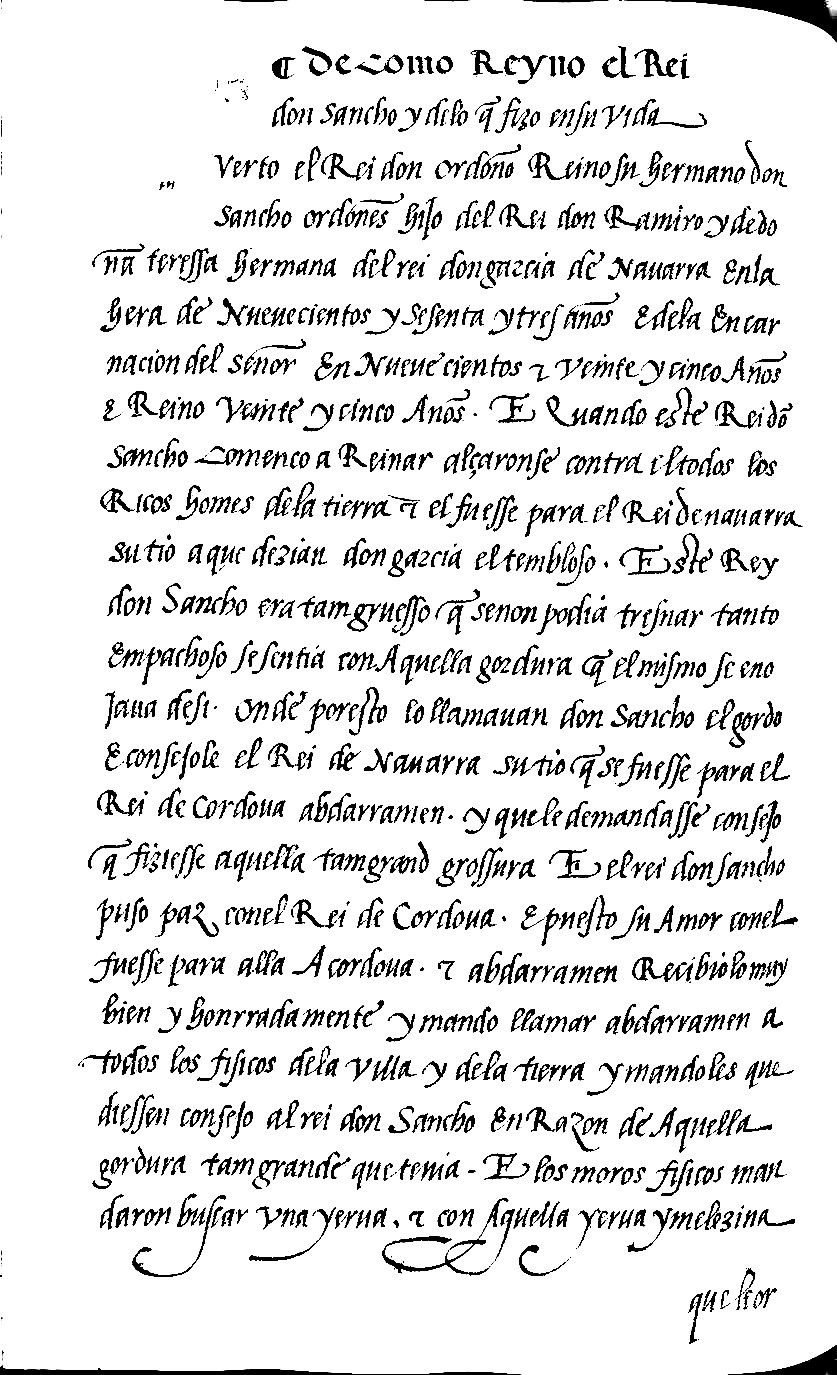 ¶ De Como Reyno el Rei
don Sancho y delo q̃ fizo ensu Vida
Verto el Rei don ordoño Reino su hermano don
Sancho ordoñes hijo del Rei don Ramiro y de do
ña teressa hermana del rei don garcia de Nauarra Enla
hera de Nueuecientos y Sesenta y tres años E dela Encar
nacion del señor En Nueue cientos ⁊ Veinte y cinco Años
E Reino Veinte y cinco Años. E Quando este Rei dõ
Sancho Comenco a Reinar alçaronse contra el todos los
Ricos homes dela tierra ⁊ el fuesse para el Rei de nauarra
su tio a que dezian don garcia el tembloso. Este Rey
don Sancho era tam gruesso q̃ se non podia tresnar tanto
Empachoso se sentia con Aquella gordura q̃ el mismo se eno
Jaua de si. Onde por esto lo llamauan don Sancho el gordo
E consejole el Rei de Nauarra su tio q̃ se fuesse para el
Rei de Cordoua abdarramen. y que le demandasse consejo
q̃ fiziesse aquella tam grand grossura E el rei don sancho
puso paz con el Rei de Cordoua. E puesto su Amor con el
fuesse para alla A cordoua. ⁊ abdarramen Recibiolo muy
bien y honrradamente y mando llamar abdarramen a
todos los fisicos dela Villa y dela tierra y mandoles que
diessen consejo al rei don Sancho En Razon de Aquella
gordura tam grande que tenia - E los moros fisicos man
daron buscar Vna yerua, ⁊ con Aquella yerua y melezina
que le tor